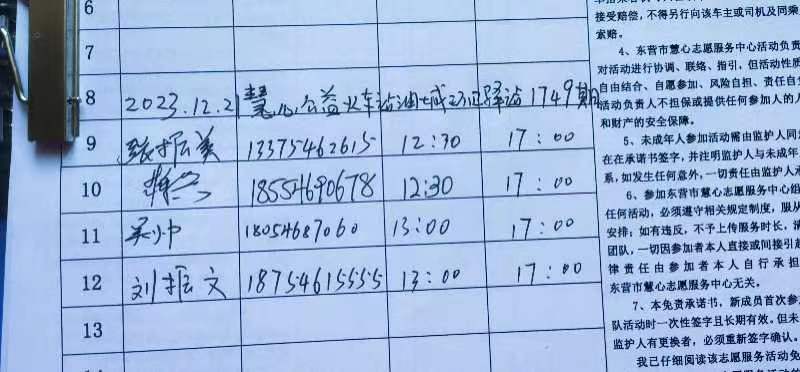 6
7
8 2023.12.21 慧心公益火车站油城223驿站1749期
9 张振美 13375462615 12:30 17:00
10 18554690678 12:30 17:00
11 吴小中 18054687060 13:00 17:00
12 刘振文 18754615555 13:00 17:00
13
接受赔偿,不得另行向该车主或司机及同乘
索赔。
4、东营市慧心志愿服务中心活动负责
对活动进行协调、联络、指引,但活动性质
自由结合、自愿参加、风险自担、责任自
活动负责人不担保或提供任何参加人的人
和财产的安全保障。
5、未成年人参加活动需由监护人同
在在承诺书签字,并注明监护人与未成年
系,如发生任何意外,一切责任由监护人承
6、参加东营市慧心志愿服务中心组
任何活动,必须遵守相关规定制度,服从
安排;如有违反,不予上传服务时长,清
团队,一切因参加者本人直接或间接引起
律责任由参加者本人自行承担
东营市慧心志愿服务中心无关。
7、本免责承诺书,新成员首次参
队活动时一次性签字且长期有效。但未
监护人有更换者,必须重新签字确认。
我已仔细阅读该志愿服务活动免